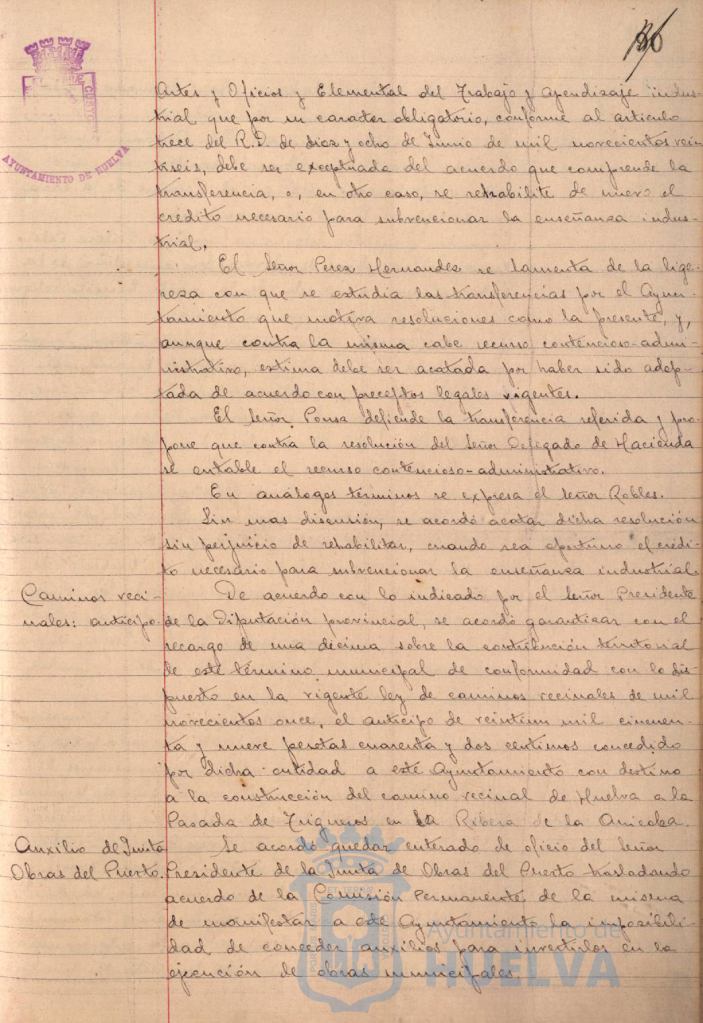 186
AYUNTAMIENTO DE HUELVA
Artes y Oficios y Elemental del Trabajo y Apendizaje indus-
trial que por su caracter obligatorio, conforme al articulo
trece del R.D. de diez y ocho de Junio de mil novecientos vein
tiseis, debe ser exceptuada del acuerdo que comprende la
transferencia, o, en otro caso, se rehabilite de nuevo el
credito necesario para subvencionar la enseñanza indus-
trial.
El Señor Perez Hernandez se lamenta de la lige-
reza con que se estudia las transferencias por el Ayun-
tamiento que motiva resoluciones como la presente, y,
aunque contra la misma cabe recurso contencioso-admi-
nistrativo, estima debe ser acatada por haber sido adop-
tada de acuerdo con preceptos legales vigentes.
El Señor Ponsa defiende la transferencia referida y pro-
pone que contra la resolución del Señor Delegado de Hacienda
se entable el recurso contencioso-administrativo.
En análogos términos se expresa el Señor Robles.
Sin mas discusion, se acordó acatar dicha resolución
sin perjuicio de rehabilitar, cuando sea oportuno el crédi-
to necesario para subvencionar la enseñanza industrial.
Caminos veci-
nales: anticipo.
De acuerdo con lo indicado por el Señor Presidente
de la Diputación provincial, se acordó garantizar con el
recargo de una décima sobre la contribución territorial
de este término municipal de conformidad con lo dis-
puesto en la vigente ley de caminos vecinales de mil
novecientos once, el anticipo de veintiun mil cincuen-
ta y nueve pesetas cuarenta y dos centimos concedido
por dicha entidad a este Ayuntamiento con destino
a la construcción del camino vecinal de Huelva a la
Pasada de Trigueros en la Ribera de la Anicoba.
Auxilio de Junta
Obras del Puerto.
Se acordó quedar enterado de oficio del Señor
Presidente de la Junta de Obras del Puerto trasladando
acuerdo de la Comisión Permanente de la misma
de manifestar a este Ayuntamiento la imposibili-
dad de conceder auxilios para invertirlos en la
ejecución de obras municipales.
Ayuntamiento de
HUELVA